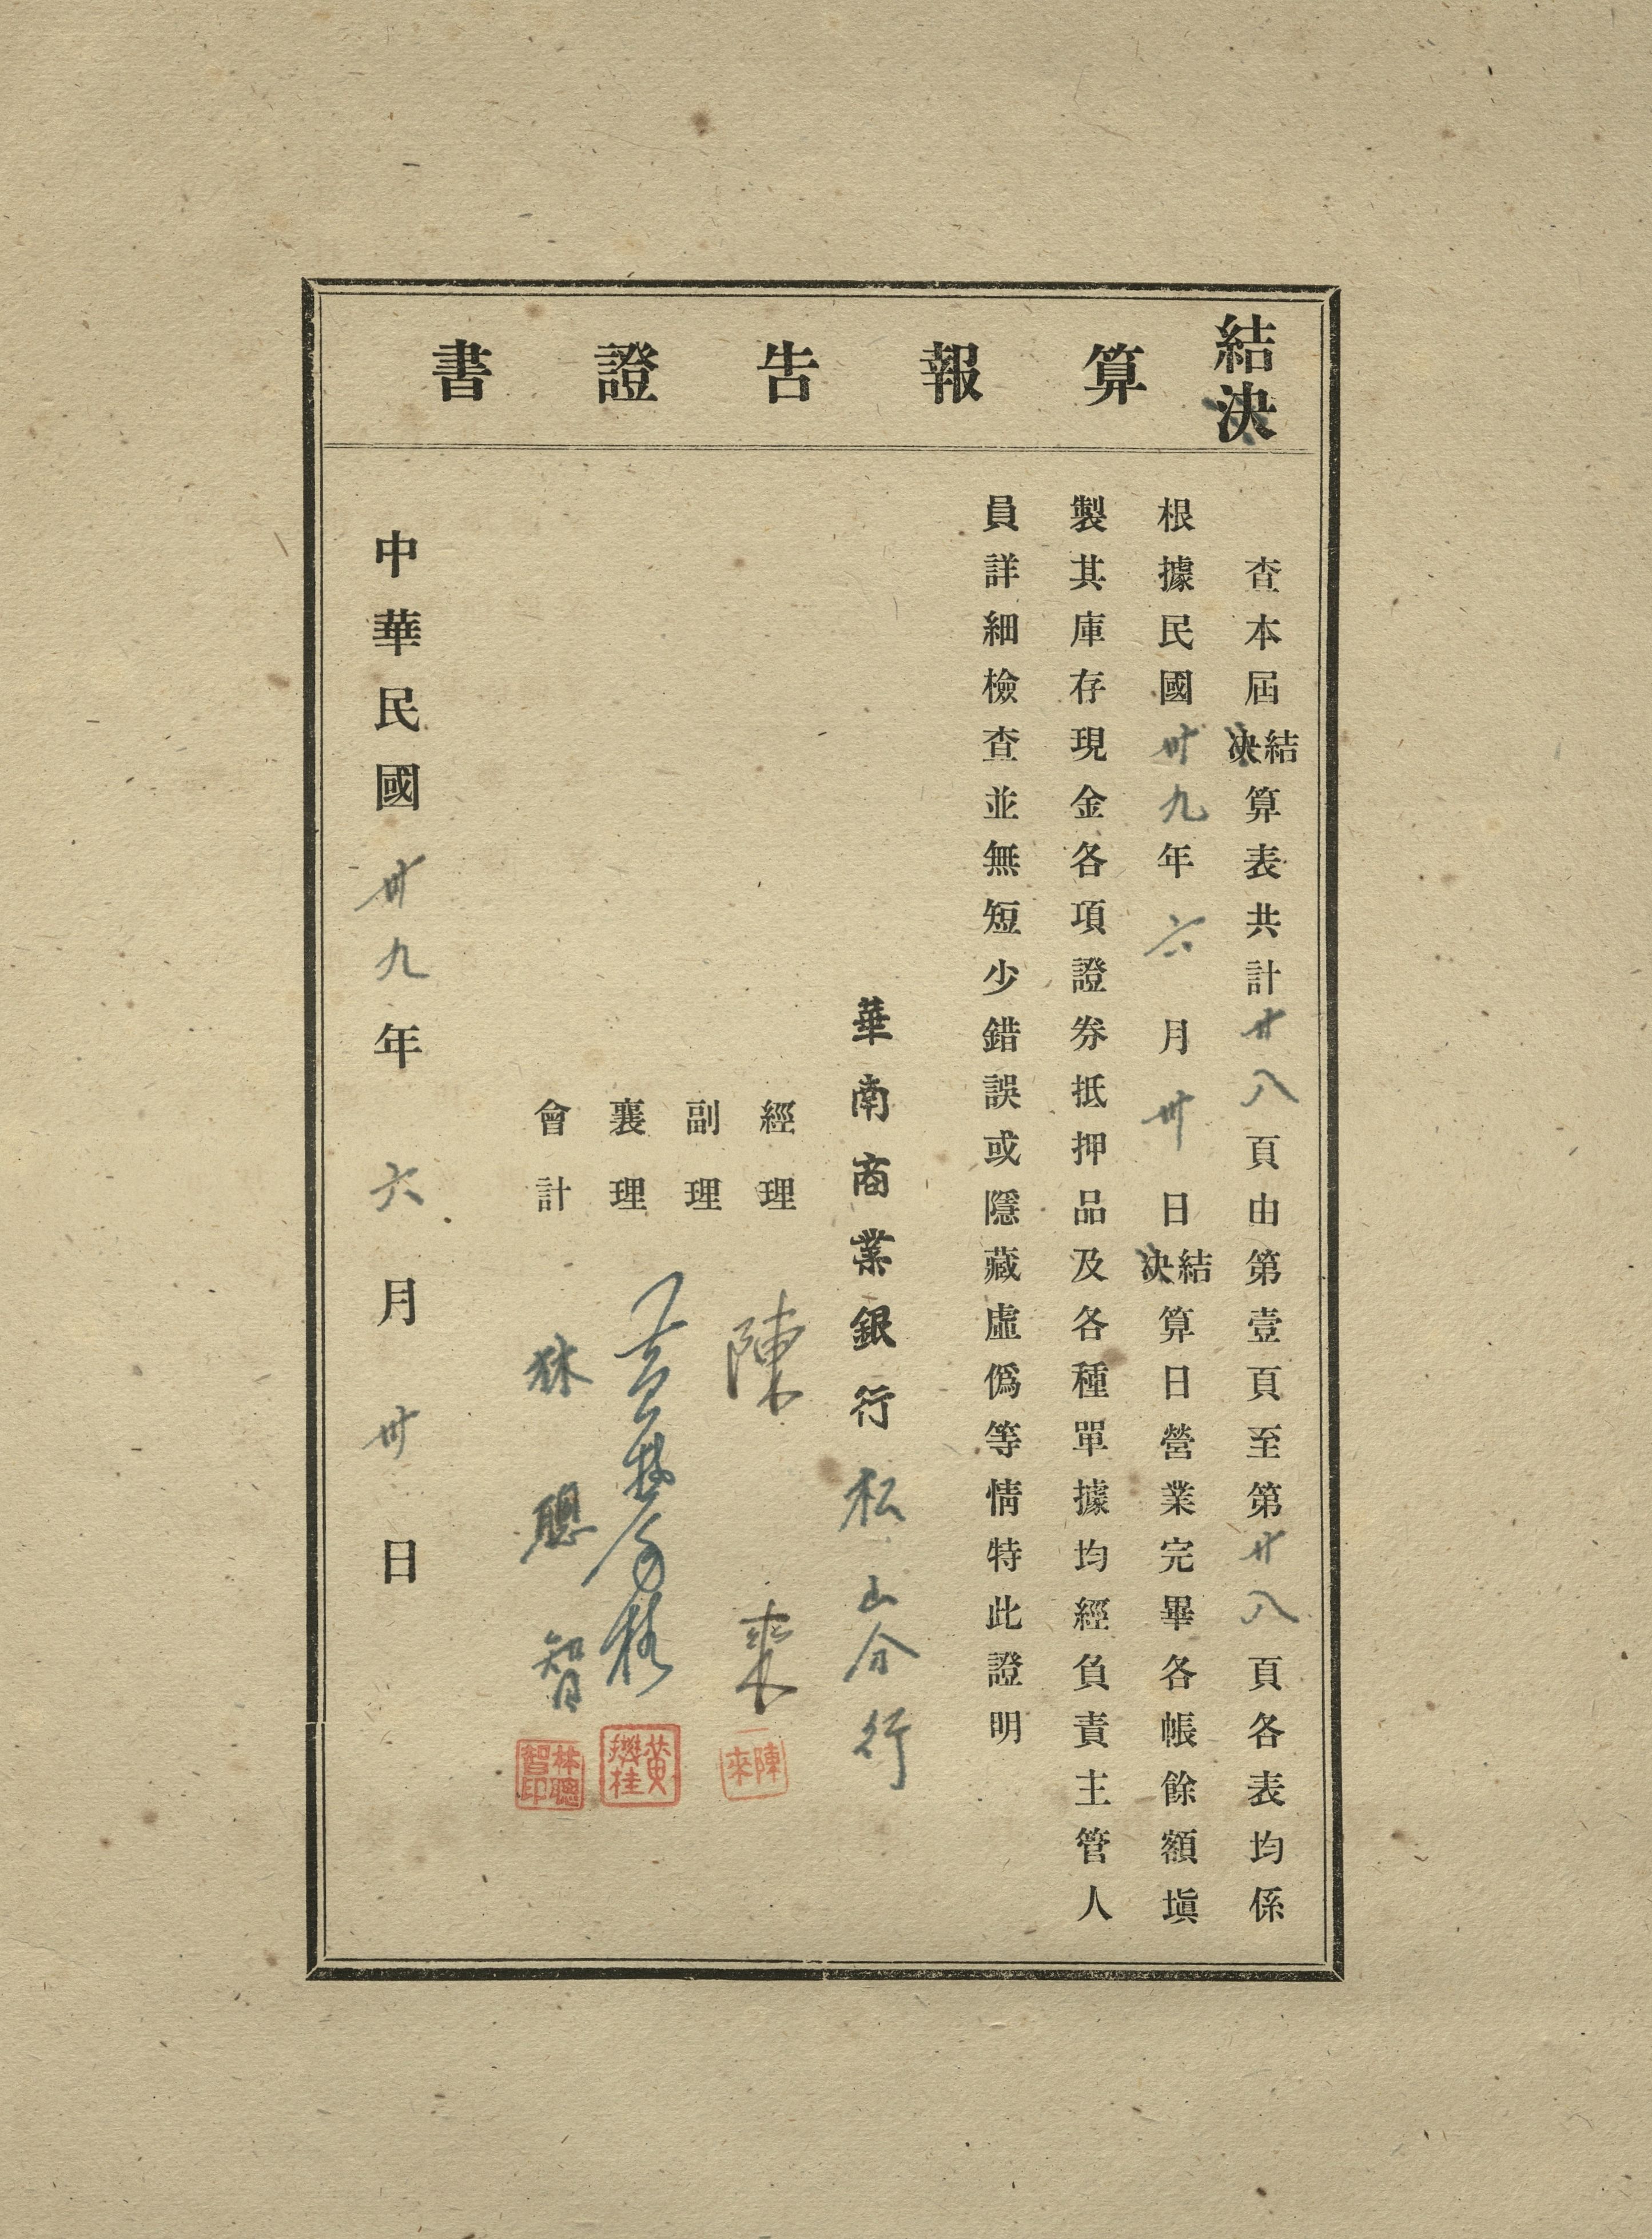 結決算報告證書
查本屆結決算表共計廿八頁由第壹頁至第廿八頁各表均係
根據民國卅九年六月卅日結決算日營業完畢各帳餘額塡
製其庫存現金各項證券抵押品及各種單據均經負責主管人
員詳細檢查並無短少錯誤或隱藏虛僞等情特此證明
華南商業銀行松山分行
經理 陳來
陳來
副理
襄理
黃機桂
會計 林聰智
林聰智印
中華民國卅九年六月卅日